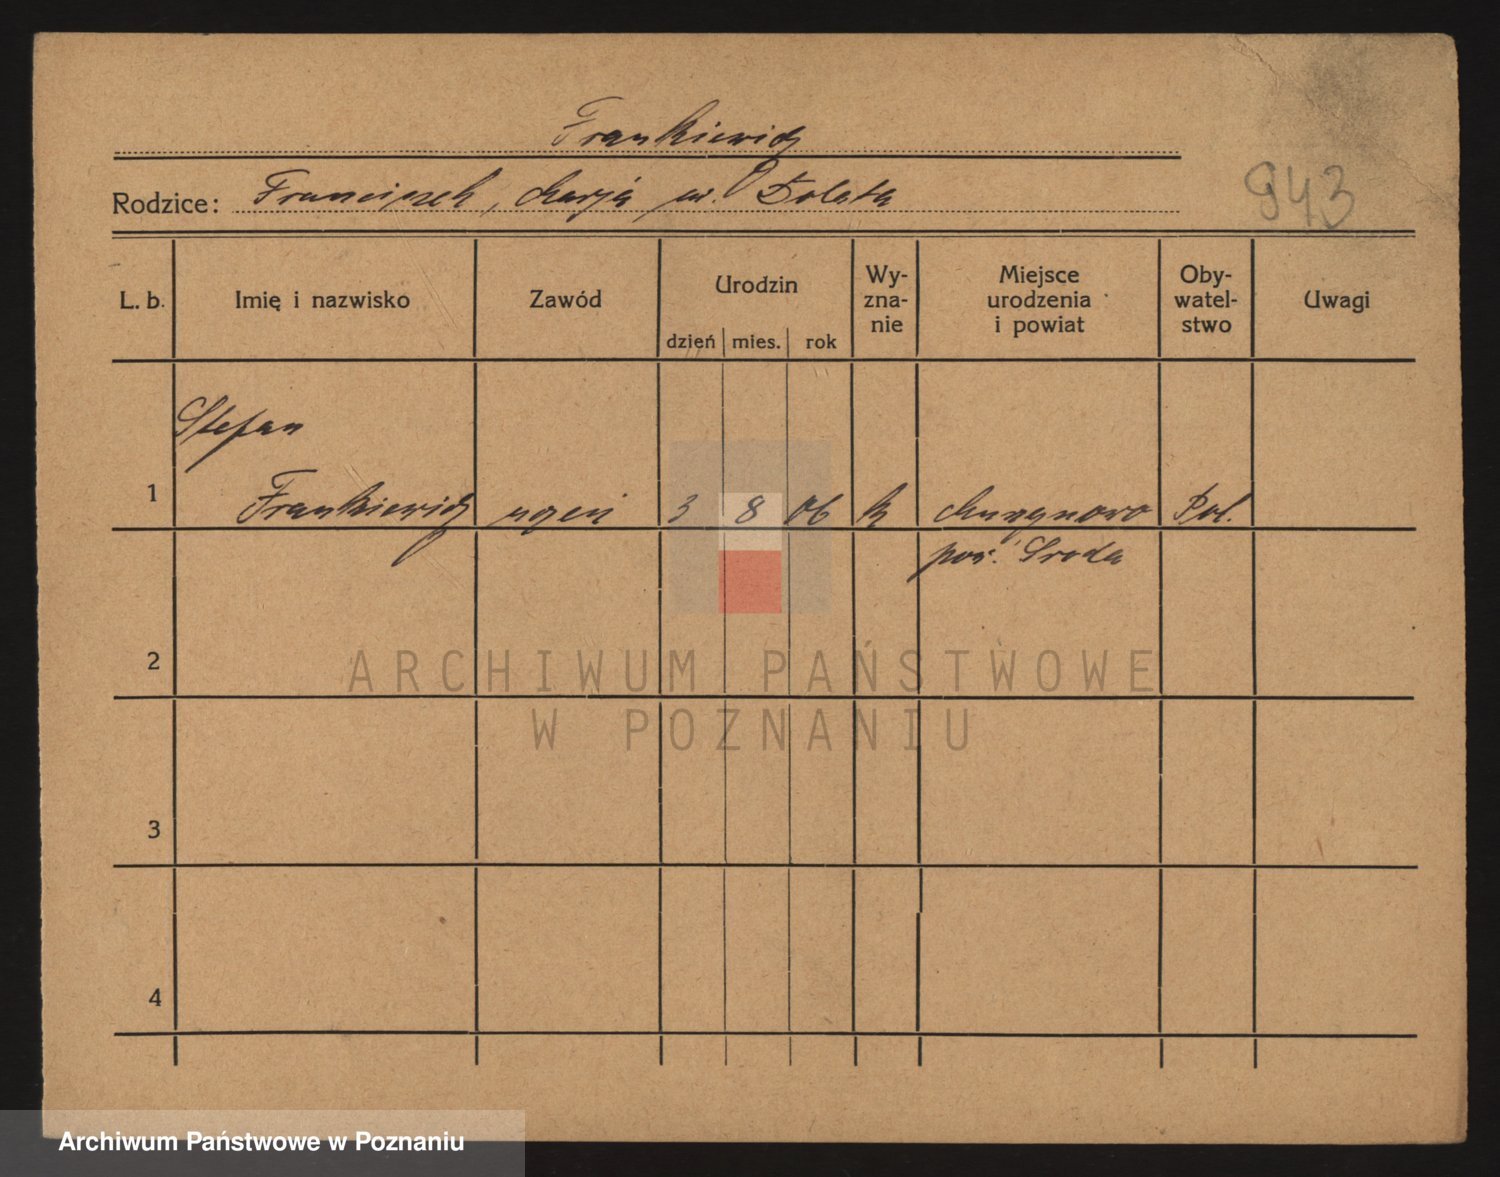 Frankiewicz
943
Rodzice: Franciszek, Marja ur. Dolata
L. b. Imię i nazwisko Zawód Urodzin dzień mies. rok Wy-zna-nie Miejsce urodzenia i powiat Oby-watel-stwo Uwagi
Stefan
1 Frankiewicz uczeń 3 8 06 k Murzynowo Pol.
pow. Sroda
2
3
4
ARCHIWUM PAŃSTWOWE
W POZNANIU
Archiwum Państwowe w Poznaniu